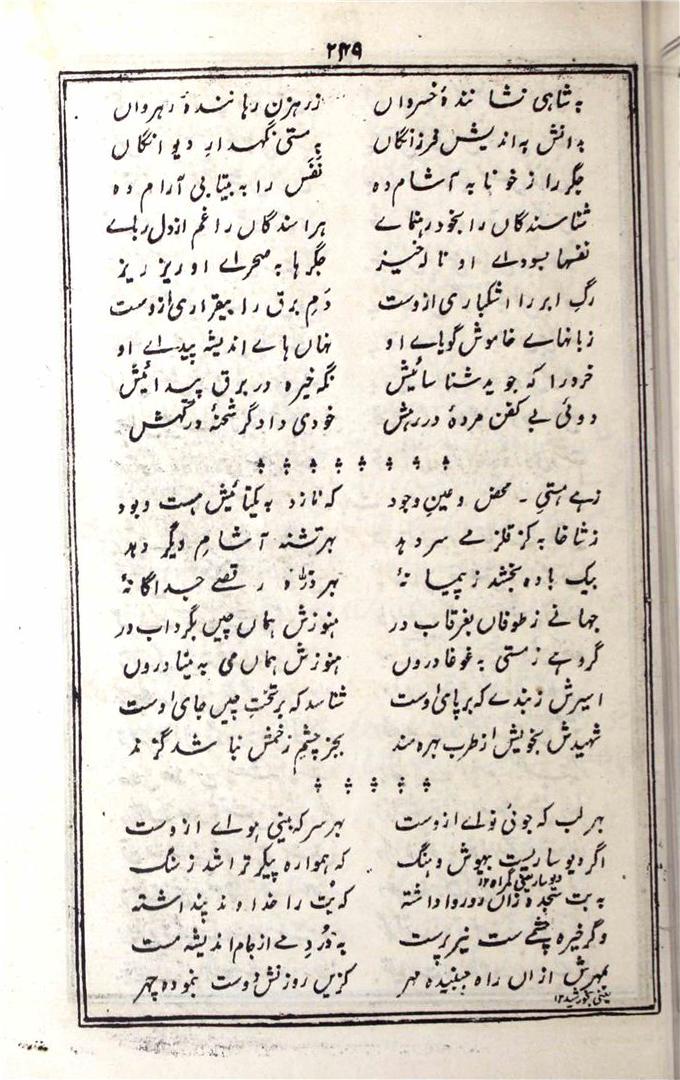 ۲۴۹
بہ شاہی نشانندۂ خسرواں زرہزن رہانندۂ رہرواں
بدانش بہ اندیش فرزانگاں بہ مستی نگہدار دیوانگاں
جگر را ز خونابہ آشام دہ نفَس را بہ بیتابی آرام دہ
شناسندگاں را بخود رہنماے ہراسندگاں را غم از دل رباے
نفسہا بسوداے او نالہ خیز جگرہا بہ صحراے او ریز ریز
رگِ ابر را اشکباری ازوست دَمِ برق را بیقراری ازوست
زبانہاے خاموش گویاے او نہاں ہاے اندیشہ پیداے او
خرد را کہ جوید شناسائیش نگہ خیرہ در برق پیدائیش
دوئی بے کفن مردۂ در رہش خودی دادگر شحنۂ درگہش
زہے ہستیِ محض و عینِ وجود کہ نازد بہ یکتائیش ہست و بود
ز شاخابہ کز قلزمے سر دہد بہر تشنہ آشامِ دیگر دہد
بیک بادہ بخشد ز پیمانۂ بہر ذرّہ رقصے جداگانۂ
جہانے ز طوفاں بغرقاب در ہنوزش ہماں چیں بگرداب در
گروہے ز مستی بہ غوغا دروں ہنوزش ہماں می بہ مینا دروں
اسیرش ز بندے کہ بر پای اوست شناسد کہ بر تختِ چیں جای اوست
شہیدش بخویش از طرب بہرہ مند بجز چشمِ زخمش نباشد گزند
بہر لب کہ جوئی نواے ازوست بہر سر کہ بینی ہواے ازوست
اگر دیو ساریست بیہوش و ہنگ کہ ہموارہ پیکر تراشد ز سنگ
دیوسار یعنی گمراہ ۱۲
بہ بت سجدہ زاں رو روا داشتہ کہ بُت را خداوند پنداشتہ
وگر خیرہ چشمے ست نیّر پرست بہ دُردِ مے از جام اندیشہ مست
بمہرش ازاں راہ جنبیدہ مہر کزیں روزنش دوست بنمودہ چہر
یعنی بخورشید ۱۲